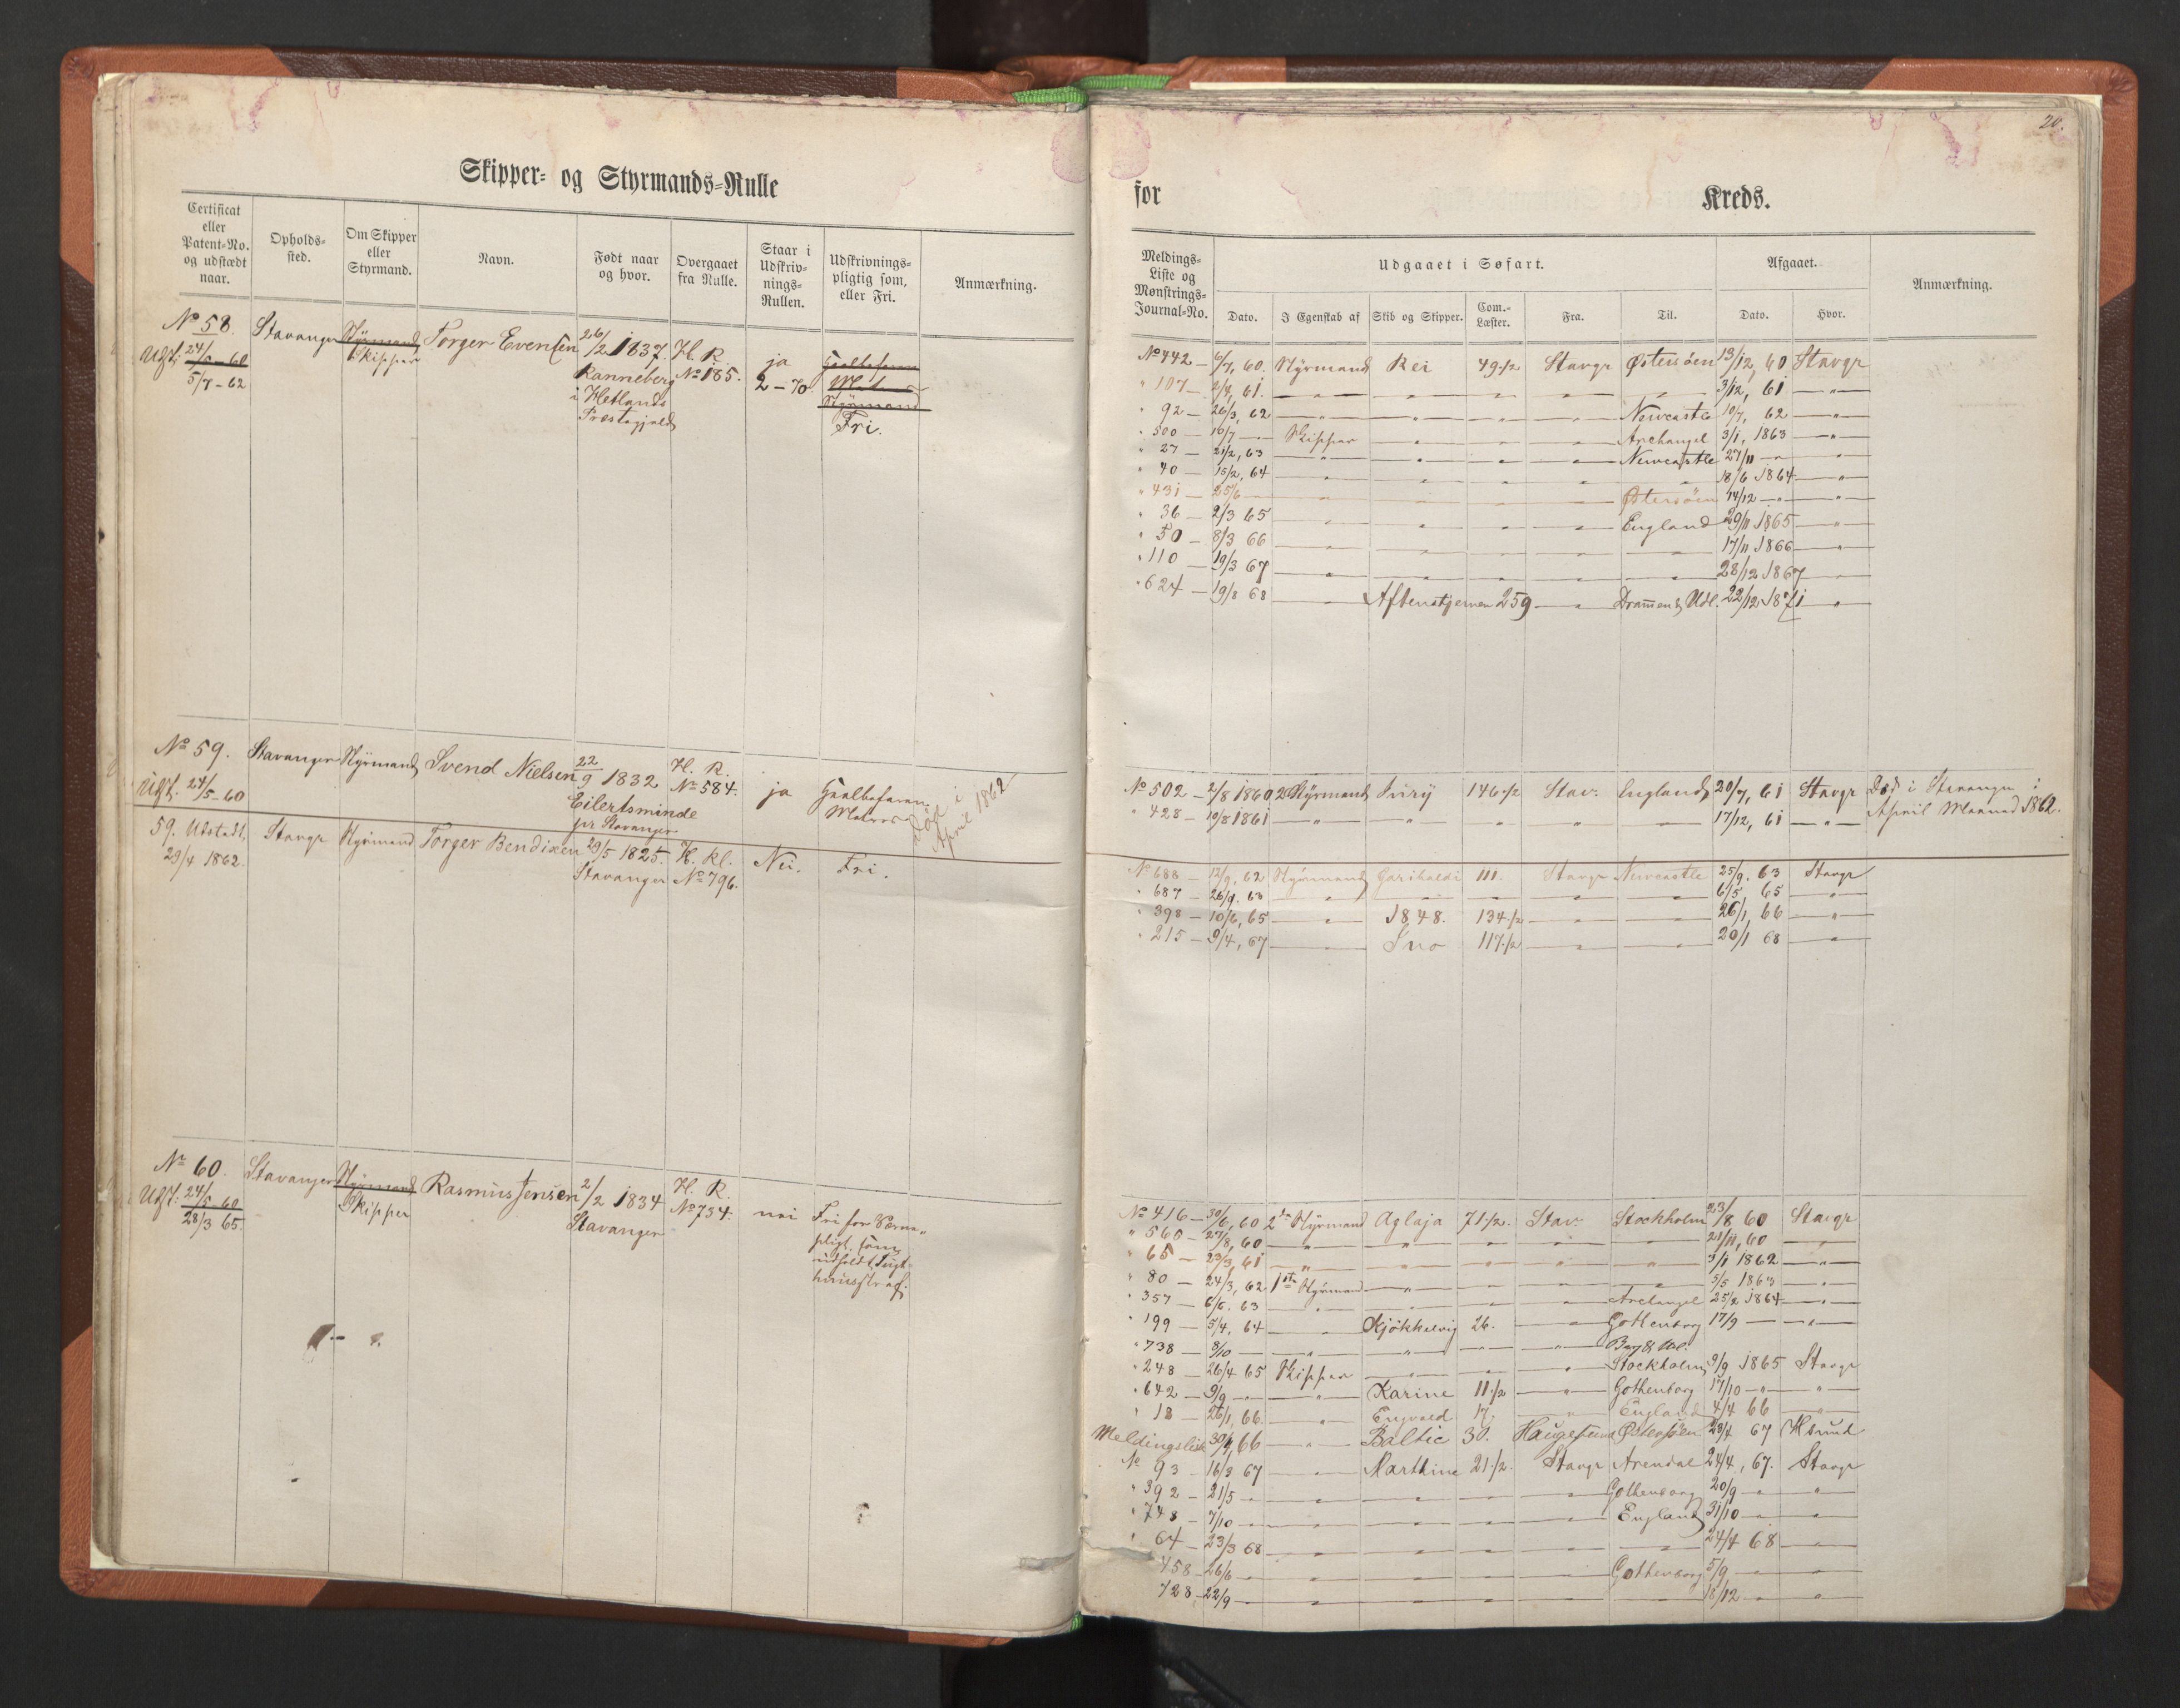 Skipper- og Styrmands-Rulle
Certificat eller Patent-No. og udstædt naar.
Opholds-sted.
Om Skipper eller Styrmand.
Navn.
Født naar og hvor.
Overgaaet fra Rulle.
Staar i Udskriv-nings-Rullen.
Udskrivnings-pligtig som, eller Fri.
Anmærkning.
No 58. Stavanger Styrmand Torger Evensen 26/2 1837. H. R. ja
Udst: 24/5-60 Skipper Ranneberg No 185. 2-70
5/7-62 i Hetlands Styrmand
Præstegjeld Fri.
No 59. Stavanger Styrmand Svend Nielsen 22/9 1832 H. R. ja
Udst. 24/5-60 Eilertsminde No 584. Matros
pr Stavanger Død i April 1862
59. Udstedt Stavgr Styrmand Torger Bendixen 29/5 1825. H. Rl. Nei. Fri.
29/4 1862. Stavanger No 796.
No 60. Stavanger Styrmand Rasmus Jensen 2/2 1834 H. R. nei Fri for Værne-
Udst: 24/5-60 Skipper Stavanger No 734. pligt,
28/3 65. udholdt Tugt-
huusstraf.
20.
for Kreds.
Meldings-Liste og Mønstrings-Journal-No.
Udgaaet i Søfart.
Afgaaet.
Anmærkning.
Dato.
I Egenskab af
Skib og Skipper.
Com.-Læster.
Fra.
Til.
Dato.
Hvor.
No 442 — 6/7, 60. Styrmand Rei 49 1/2 Stavgr Østersöen 13/12, 60 Stavgr
" 107 — 2/4, 61. — " — " — " — " — — 3/12, 61 — " —
" 92 — 26/3, 62 — " — " — " — " — Newcastle 10/7, 62 — " —
" 500 — 10/7 — Skipper — " — " — " — Archangel 3/1, 1863 — " —
" 27 — 21/2, 63 — " — " — " — " — Newcastle 27/11 — " — "
" 40 — 15/2, 64 — " — " — " — " — " 18/6 1864 — " —
" 431 — 25/6 — " — " — " — " — Østersöen 14/12 — " — " —
" 36 — 2/3 65 — " — " — " — " — England 29/11 1865 — " —
" 50 — 8/3 66 — " — " — " — " — 17/11 1866 — " —
" 110 — 19/3 67 — " — " — " — " — 28/12 1867 — " —
" 624 — 19/8 68 — " — Aftenstjernen 259 — " — Drammen & Udl. 22/12 1871 "
No 502 — 2/8 1860 2d Styrmand Ivirÿ 146 1/2 Stav. England 20/7, 61 Stavgr Død i Stavanger i
" 428 — 10/8 1861 — " — " — " — " — " 17/12, 61 — " — April Maaned 1862.
No 688 — 12/9, 62 Styrmand Garibaldi 111. Stavgr Newcastle 25/9. 63 Stavgr
" 687 — 26/9. 63 — " — " — " — " — " 6/5 65 — " —
" 398 — 10/6, 65 — " — 1848. 134 1/2 — " — " — 26/1, 66 — " —
" 215 — 9/4, 67 — " — Ino 117 1/2 — " — " — 20/1 68 — " —
No 416 — 30/6, 60 2den Styrmand Aglaja 71 1/2. Stav. Stockholm 23/8 60 Stavgr
" 560 — 27/8, 60 — " — " — " — " — " 21/11, 60 — " —
" 65 — 23/3, 61 — " — " — " — " — " 3/1 1862 — " —
" 80 — 24/3, 62 1ste Styrmand — " — " — " — 5/5 1863 — " —
" 357 — 6/6. 63 — " — " — " — " Archangel 25/2 1864 — " —
" 199 — 5/4, 64 — " — Kjökkelvig 26. — " — Gothenborg 17/9 — " —
" 738 — 8/10 — " — " — " — " —
" 248 — 26/4 65 Skipper — " — " — " Stockholm 9/9 1865 Stavgr
" 642 — 9/9 — " — " Karine 11 1/2 — " — Gothenborg 17/10 — " — "
" 18 — 26/1, 66. — " — Engvald 17, — " — England 4/4 66 — " —
Meldingsliste 30/4, 66 — " — Baltic 30. Haugesund Østersöen 29/4 67 Hsund
No 93 — 16/3 67 — " — Marthine 21 1/2. Stavgr Arendal 24/4, 67. Stavgr
" 392 — 21/5 — " — " — " — " — Gothenborg 20/9 — " — "
" 748 — 7/10 — " — " — " — " — England 31/10 — " — "
" 64 — 23/3 68 — " — " — " — " — " 24/4 68 — " —
458 — 26/6 — " — " — " — " — Gothenborg 5/9 — " — "
728 — 22/9 — " — " — " — " — " 18/12 — " — "